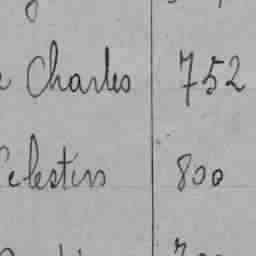 Charles 752
Celestin 800